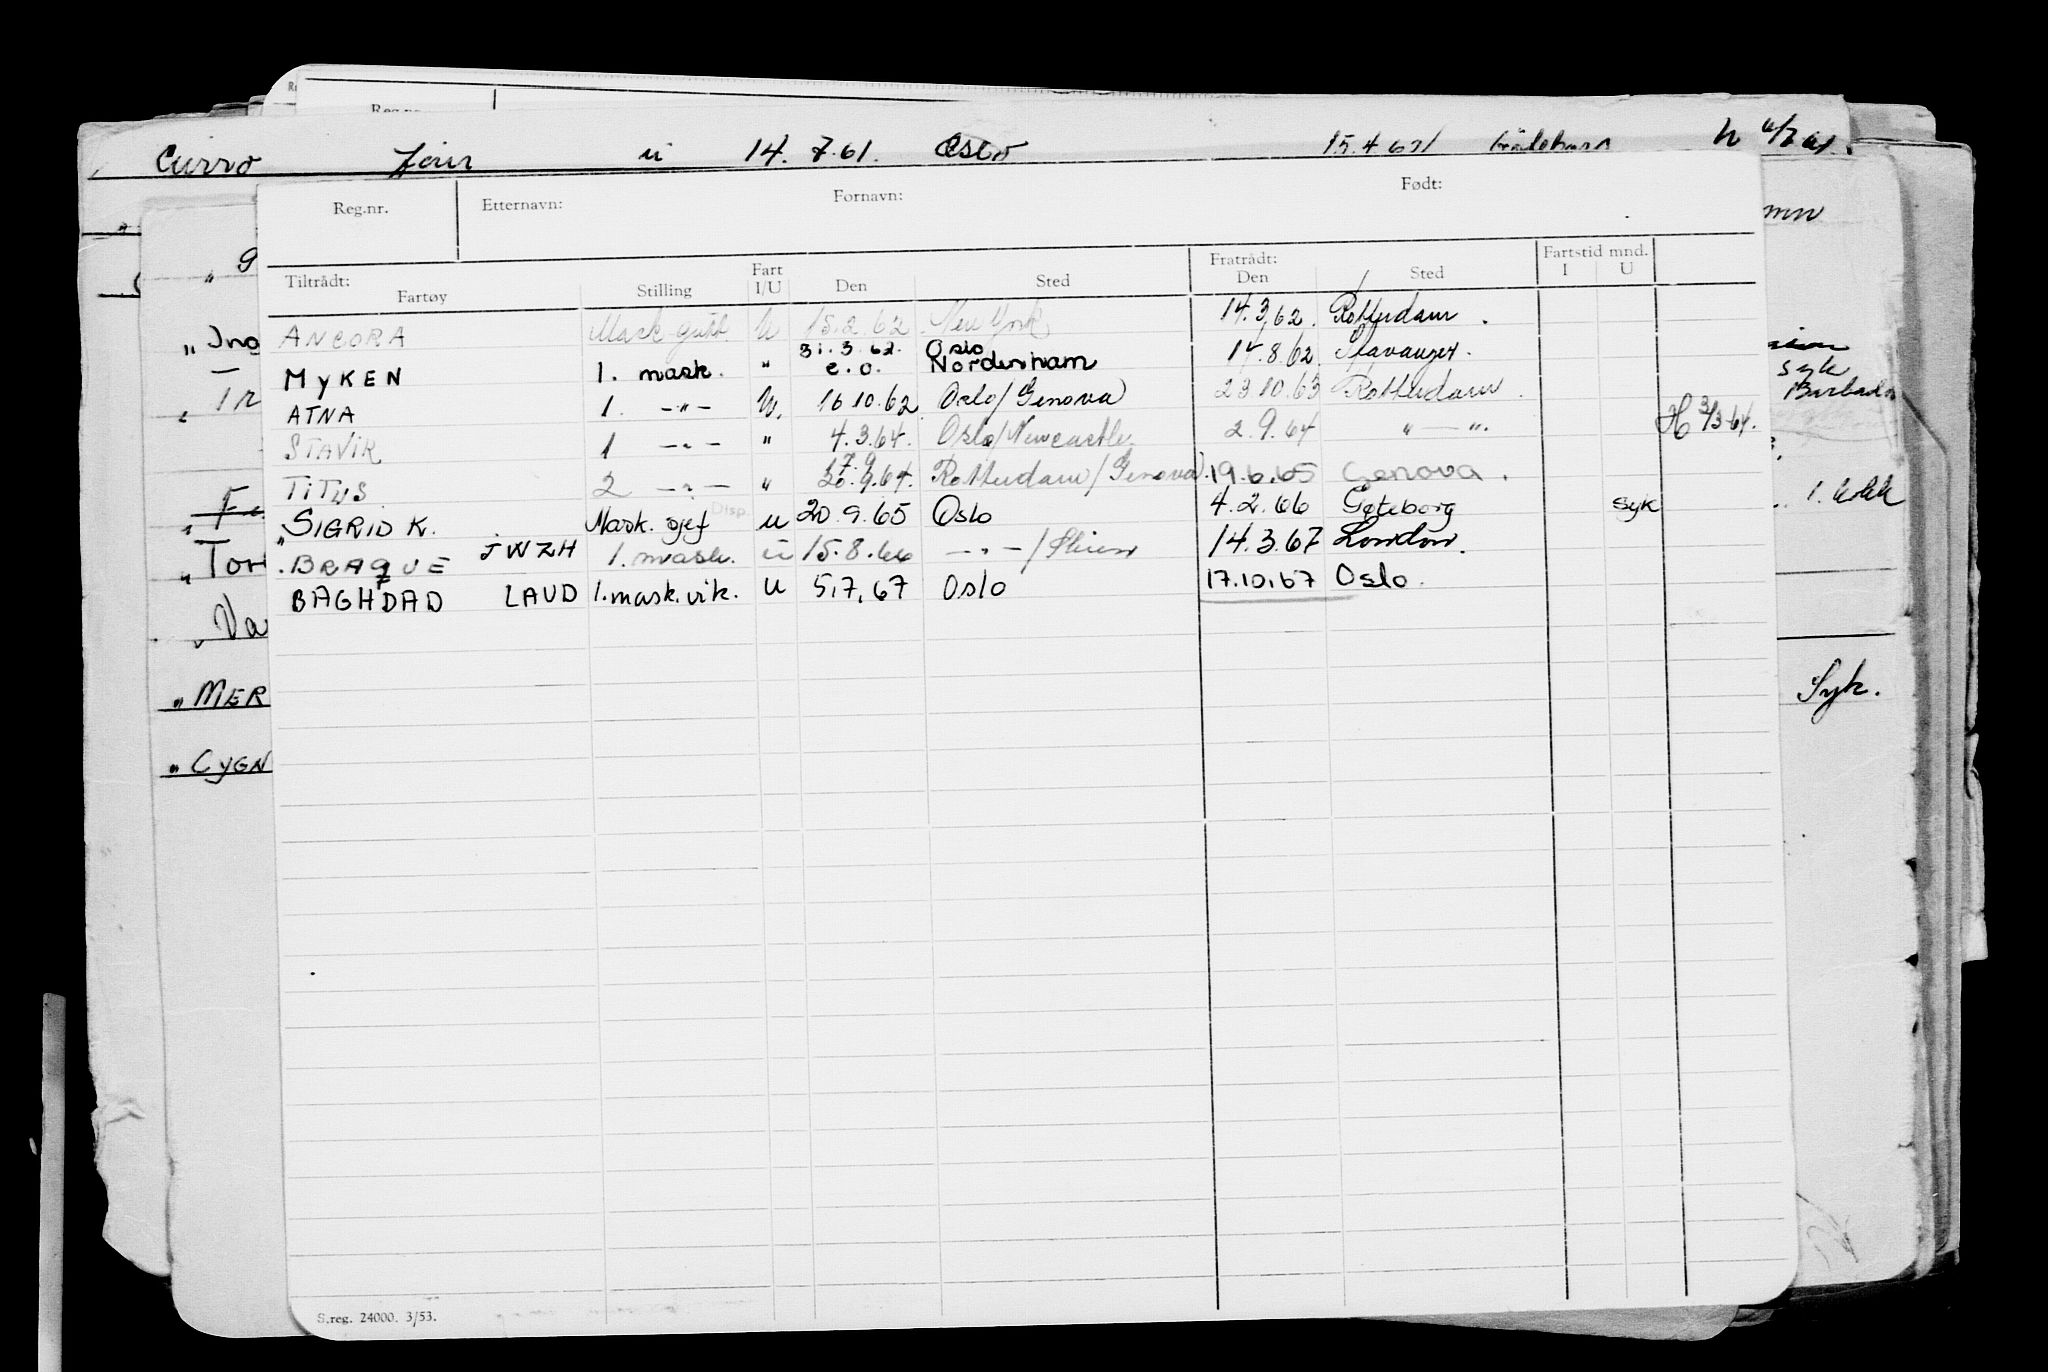 Curro u 14. 7.61. Oslo
Reg.nr. Etternavn: Fornavn: Født:
Tiltrådt: Fartøy Stilling Fart I/U Den Sted Fratrådt: Den Sted Fartstid mnd. I U
ANCORA Mask gutt U 15.2.62 New York 14.3.62. Rotterdam.
31.3.62. Oslo
MYKEN 1. mask. " e.o. Nordenham 14.8.62 Stavanger.
ATNA 1. -"- U. 16 10.62 Oslo/Genova 23.10.63 Rotterdam.
STAVIK 1 -"- " 4.3.64. Oslo/Newcastle. 2.9.64 " — ". H 3/3-64.
17.9
TITUS 2 -"- " 9.64. Rotterdam/Genova. 19.6.65 Genova.
Disp.
"SIGRID K. Mask. sjef u 20.9.65 Oslo 4.2.66 Gøteborg syk
BRAQUE JWZH 1. mask. u 15.8.66 -"-/Skien 14.3.67 London.
BAGHDAD LAUD 1.mask.vik. u 5,7,67 Oslo 17.10.67 Oslo.
syk
1. kokk
" Va
" MER
Syk.
" CYGN
S.reg. 24000. 3/53.